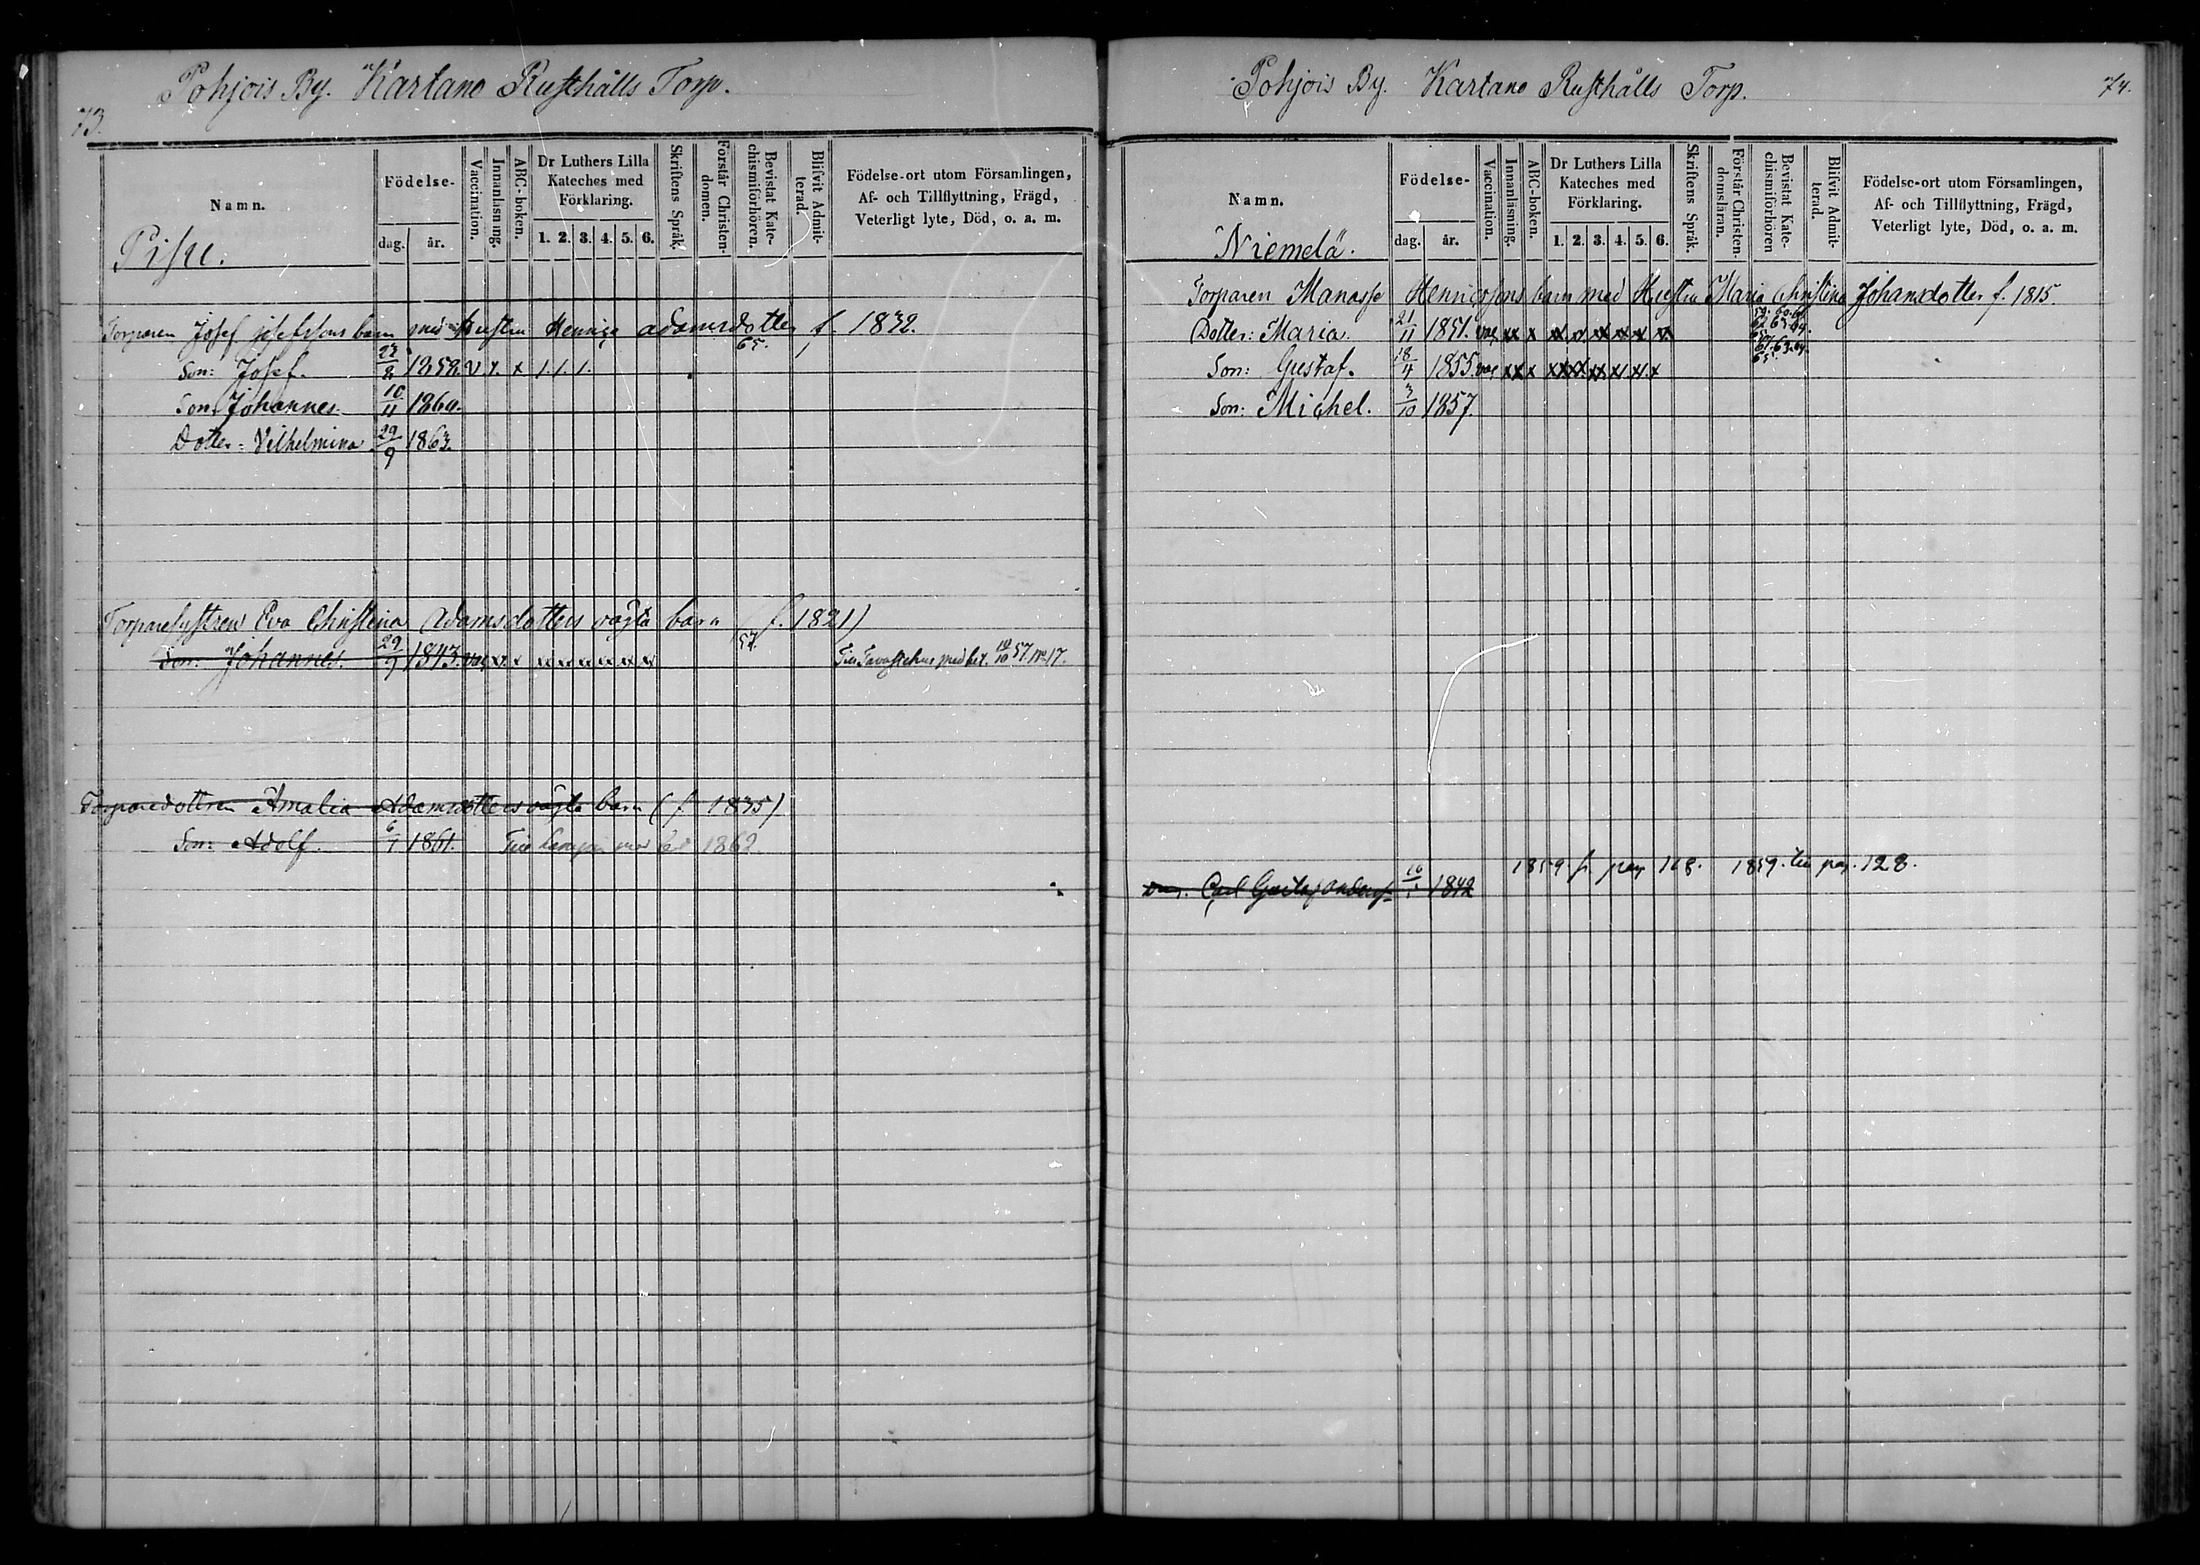 73.
Pohjois By. Kartano Rusthålls Torp.
Namn.
Födelse-
dag. år.
Vaccination.
Innanläsning.
ABC-boken.
Dr Luthers Lilla Kateches med Förklaring.
1. 2. 3. 4. 5. 6.
Skriftens Språk.
Förstår Christendomen.
Bevistat Katechismiförhören.
Blifvit Admitterad.
Födelse-ort utom Församlingen,
Af- och Tillflyttning, Frägd,
Veterligt lyte, Död, o. a. m.
Torparen Josef Josefssons barn med Hustrun Adamsdotter f. 1832.
Son: Josef. 1859. v x. x 1. 1. 1. 65.
Son: Johannes. 16/11 1860.
Dotter: Vilhelmina 29/9 1863.
Torparehustrun Eva Christina Adamsdotters oägta barn (f. 1821)
Son: Johannes. 29/9 1843. vac x x x x x x x x 57. Till Tavastehus med bet. 57. No 17.
Torparedottren Amalia Adamsdotters oägta barn (f. 1835)
Son: Adolf. 1861. Till 1862.
Pohjois By. Kartano Rusthålls Torp.
74.
Namn.
Niemelä.
Födelse-
dag. år.
Vaccination.
Innanläsning.
ABC-boken.
Dr Luthers Lilla Kateches med Förklaring.
1. 2. 3. 4. 5. 6.
Skriftens Språk.
Förstår Christendomslaran.
Bevistat Katechismiförhören
Blifvit Admitterad.
Födelse-ort utom Församlingen,
Af- och Tillflyttning, Frägd,
Veterligt lyte, Död, o. a. m.
Torparen Manasse Henricssons barn med Hustru Maria Christina Johansdotter f. 1815
Dotter: Maria. 21/11 1851. vac xx x xx x xx xx xx x
Son: Gustaf. 18/4 1855. vac xx x xx xx xx xx xx x
Son: Michel. 3/10 1857.
1859 fr. pag 168. 1859. till pag. 128.
Carl Gustaf 1842